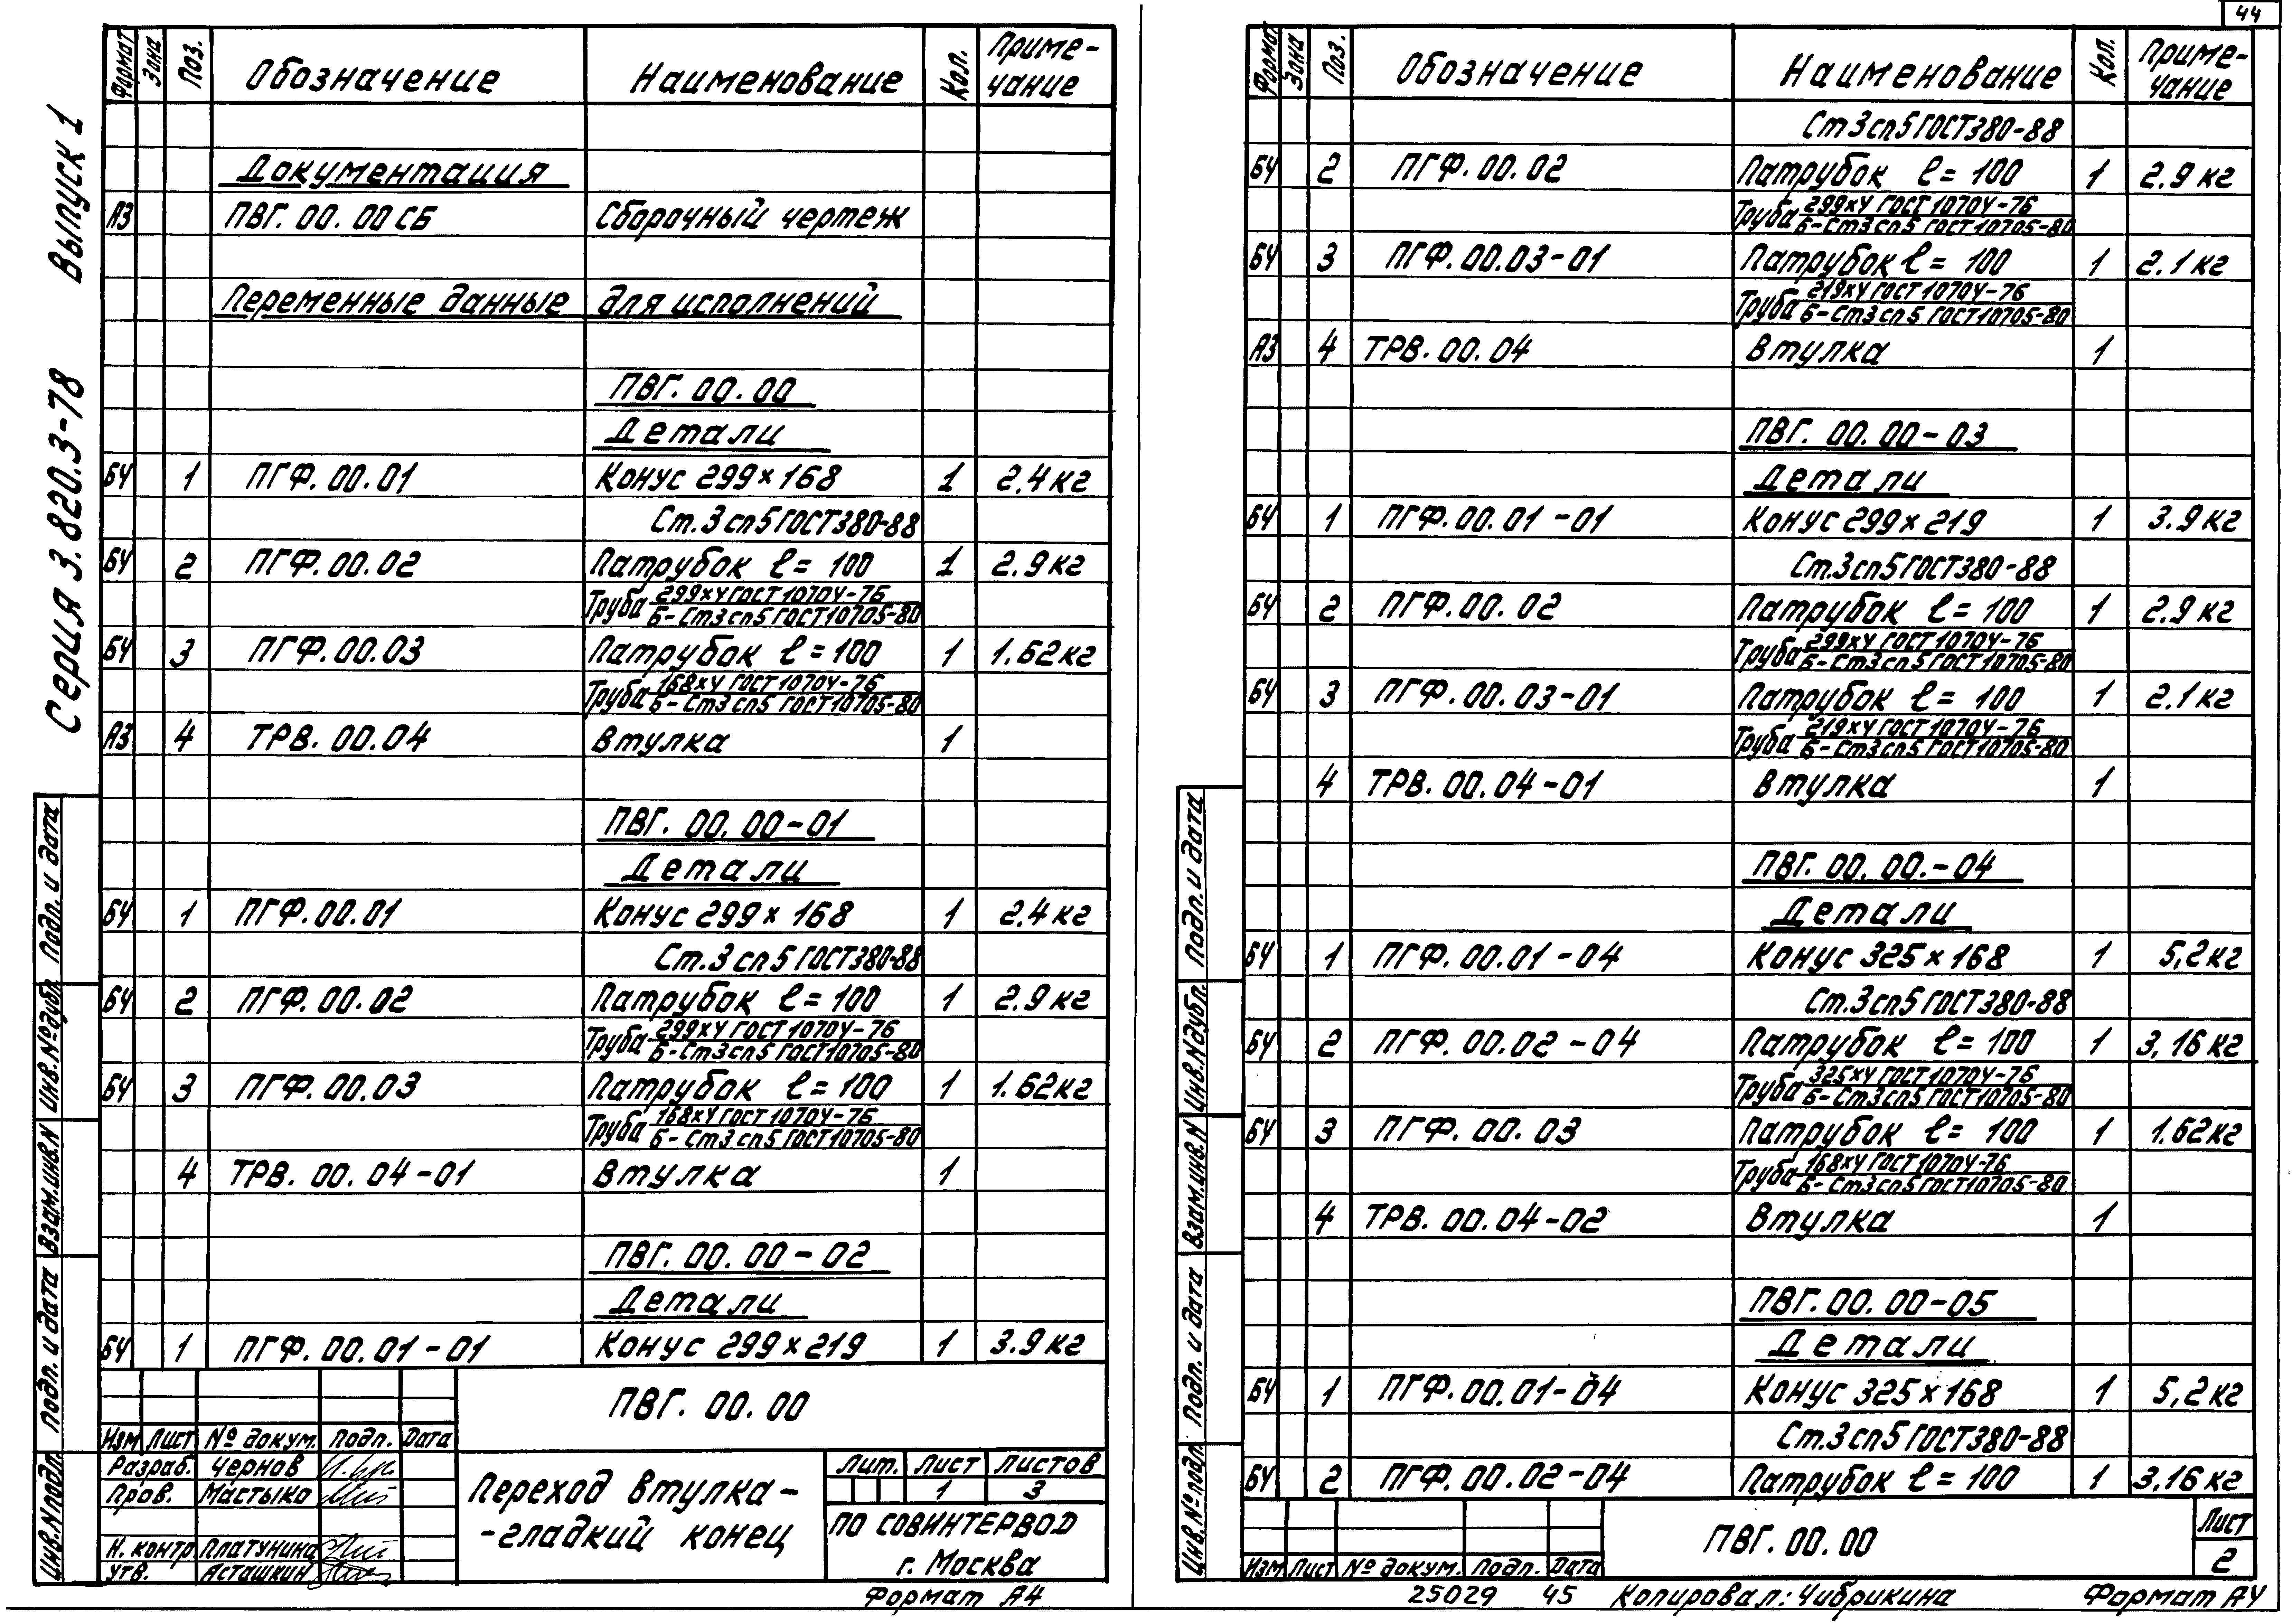 44
Серия 3.820.3-78 Выпуск 1
Формат Зона Поз. Обозначение Наименование Кол. Приме-
чание
Документация
А3 ПВГ. 00. 00 СБ Сборочный чертеж
Переменные данные для исполнений
ПВГ. 00. 00
Детали
БЧ 1 ПГФ. 00. 01 Конус 299 × 168 1 2.4 кг
Ст. 3 сп 5 ГОСТ 380-88
БЧ 2 ПГФ. 00. 02 Патрубок ℓ = 100 1 2.9 кг
Труба 299х4 ГОСТ 10704-76
Б-Ст3 сп5 ГОСТ 10705-80
БЧ 3 ПГФ. 00. 03 Патрубок ℓ = 100 1 1.62 кг
Труба 168х4 ГОСТ 10704-76
Б-Ст3 сп5 ГОСТ 10705-80
А3 4 ТРВ. 00. 04 Втулка 1
ПВГ. 00. 00-01
Детали
БЧ 1 ПГФ. 00. 01 Конус 299 × 168 1 2.4 кг
Ст. 3 сп 5 ГОСТ 380-88
БЧ 2 ПГФ. 00. 02 Патрубок ℓ = 100 1 2.9 кг
Труба 299х4 ГОСТ 10704-76
Б-Ст3 сп5 ГОСТ 10705-80
БЧ 3 ПГФ. 00. 03 Патрубок ℓ = 100 1 1.62 кг
Труба 168х4 ГОСТ 10704-76
Б-Ст3 сп5 ГОСТ 10705-80
4 ТРВ. 00. 04-01 Втулка 1
ПВГ. 00. 00-02
Детали
БЧ 1 ПГФ. 00. 01-01 Конус 299 × 219 1 3.9 кг
Инв.№подл. Подп. и дата Взам.инв.№ Инв.№дубл. Подп. и дата
ПВГ. 00. 00
Изм Лист № докум. Подп. Дата
Разраб. Чернов
Пров. Мастыко
Н. контр Платунина
Утв. Асташкин
Переход втулка-
-гладкий конец
Лит. Лист Листов
1 3
ПО СОВИНТЕРВОД
г. Москва
Формат А4
Формат Зона Поз. Обозначение Наименование Кол. Приме-
чание
Ст 3 сп 5 ГОСТ 380-88
БЧ 2 ПГФ. 00. 02 Патрубок ℓ = 100 1 2.9 кг
Труба 299х4 ГОСТ 10704-76
Б-Ст3 сп5 ГОСТ 10705-80
БЧ 3 ПГФ. 00. 03-01 Патрубок ℓ = 100 1 2.1 кг
Труба 219х4 ГОСТ 10704-76
Б-Ст3 сп5 ГОСТ 10705-80
А3 4 ТРВ. 00. 04 Втулка 1
ПВГ. 00. 00-03
Детали
БЧ 1 ПГФ. 00. 01-01 Конус 299 × 219 1 3.9 кг
Ст. 3 сп 5 ГОСТ 380-88
БЧ 2 ПГФ. 00. 02 Патрубок ℓ = 100 1 2.9 кг
Труба 299х4 ГОСТ 10704-76
Б-Ст3 сп5 ГОСТ 10705-80
БЧ 3 ПГФ. 00. 03-01 Патрубок ℓ = 100 1 2.1 кг
Труба 219х4 ГОСТ 10704-76
Б-Ст3 сп5 ГОСТ 10705-80
4 ТРВ. 00. 04-01 Втулка 1
ПВГ. 00. 00.-04
Детали
БЧ 1 ПГФ. 00. 01-04 Конус 325 × 168 1 5,2 кг
Ст. 3 сп 5 ГОСТ 380-88
БЧ 2 ПГФ. 00. 02-04 Патрубок ℓ = 100 1 3,16 кг
Труба 325х4 ГОСТ 10704-76
Б-Ст3 сп5 ГОСТ 10705-80
БЧ 3 ПГФ. 00. 03 Патрубок ℓ = 100 1 1.62 кг
Труба 168х4 ГОСТ 10704-76
Б-Ст3 сп5 ГОСТ 10705-80
4 ТРВ. 00. 04-02 Втулка 1
ПВГ. 00. 00-05
Детали
БЧ 1 ПГФ. 00. 01-04 Конус 325 × 168 1 5,2 кг
Ст. 3 сп 5 ГОСТ 380-88
БЧ 2 ПГФ. 00. 02-04 Патрубок ℓ = 100 1 3,16 кг
Инв.№подл. Подп. и дата Взам.инв.№ Инв.№дубл. Подп. и дата
Изм Лист № докум. Подп. Дата
ПВГ. 00. 00
Лист
2
25029 45 Копировал: Чибрикина Формат А4